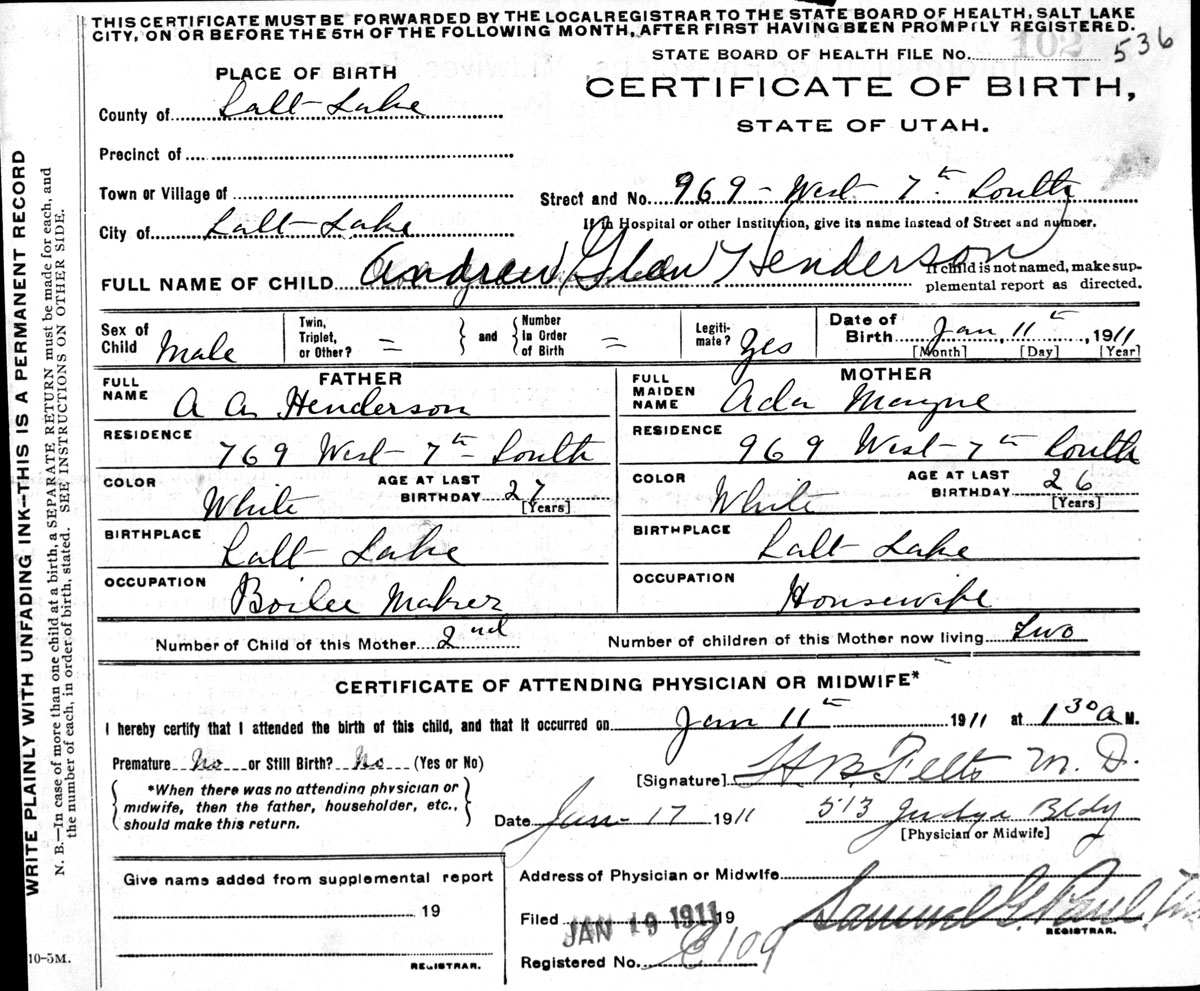 THIS CERTIFICATE MUST BE FORWARDED BY THE LOCAL REGISTRAR TO THE STATE BOARD OF HEALTH, SALT LAKE
CITY, ON OR BEFORE THE 5TH OF THE FOLLOWING MONTH, AFTER FIRST HAVING BEEN PROMPTLY REGISTERED.
STATE BOARD OF HEALTH FILE No. 102 536
PLACE OF BIRTH
CERTIFICATE OF BIRTH,
STATE OF UTAH.
County of Salt Lake
Precinct of
Town or Village of
Street and No. 969 - West 7th South
City of Salt Lake
If in Hospital or other Institution, give its name instead of Street and number.
FULL NAME OF CHILD Andrew Glen Henderson
If child is not named, make sup-
plemental report as directed.
Sex of Child Male
Twin, Triplet, or Other? =
and
Number in Order of Birth =
Legiti-mate? Yes
Date of Birth Jan 11th, 1911
[Month] [Day] [Year]
FATHER
FULL NAME A A Henderson
RESIDENCE 769 West 7th South
COLOR White
AGE AT LAST BIRTHDAY 27 [Years]
BIRTHPLACE Salt Lake
OCCUPATION Boiler Makrer
MOTHER
FULL MAIDEN NAME Ada Mayne
RESIDENCE 969 West 7th South
COLOR White
AGE AT LAST BIRTHDAY 26 [Years]
BIRTHPLACE Salt Lake
OCCUPATION Housewife
Number of Child of this Mother 2nd
Number of children of this Mother now living Two
CERTIFICATE OF ATTENDING PHYSICIAN OR MIDWIFE*
I hereby certify that I attended the birth of this child, and that it occurred on Jan 11th 1911 at 1 30 a M.
Premature No or Still Birth? No (Yes or No)
[Signature] H B Felts M. D.
*When there was no attending physician or
midwife, then the father, householder, etc.,
should make this return.
Date Jan - 17 1911
513 Judge Bldg
[Physician or Midwife]
Give name added from supplemental report
19
REGISTRAR.
Address of Physician or Midwife
Filed JAN 19 1911 19
Samuel G. Paul.
REGISTRAR.
Registered No. C109
10-5M.
WRITE PLAINLY WITH UNFADING INK—THIS IS A PERMANENT RECORD
N. B.—In case of more than one child at a birth, a SEPARATE RETURN must be made for each, and
the number of each, in order of birth, stated. SEE INSTRUCTIONS ON OTHER SIDE.